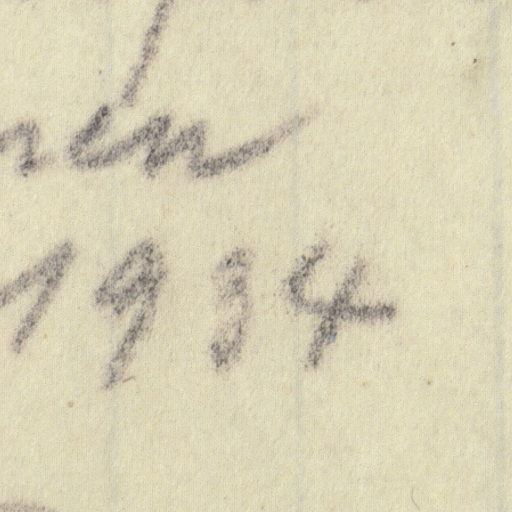 nen
1934